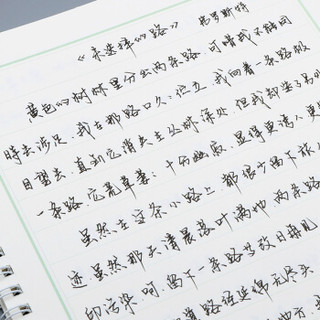 《未选择的路》 弗罗斯特
黄色的树林里分出两条路，可惜我不能同
时去涉足，我在那路口久久伫立，我向着一条路极
目望去，直到它消失在丛林深处。但我却选了另外
一条路，它荒草萋萋，十分幽寂，显得更诱人更
虽然在这条小路上 都很少留下旅人
迹 虽然那天清晨落叶满地 两条路
印污染 呵，留下一条路等改日再见
道路径延绵无尽头